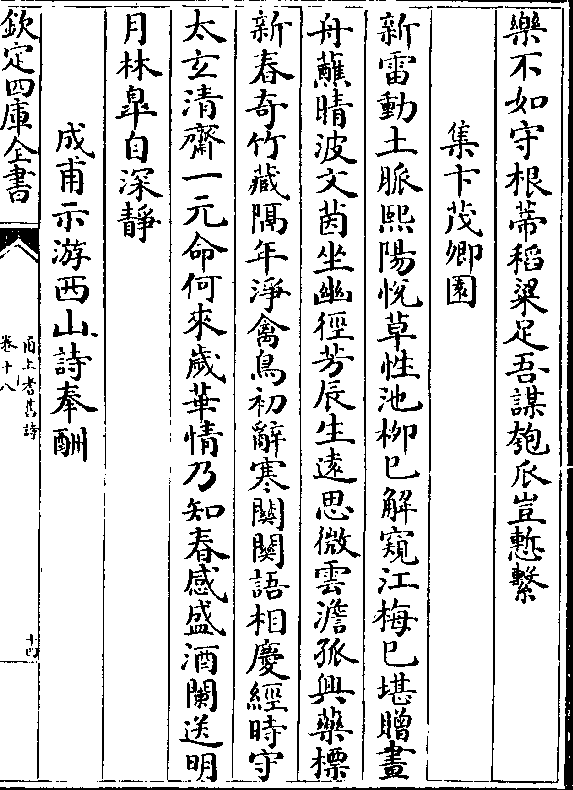 樂不如守根蒂稻粱足吾謀匏瓜豈慙繫
集卞茂卿園
新雷動土脈熙陽悅草性池柳已解窺江梅已堪贈畫
舟蘸晴波文茵坐幽徑芳辰生遠思微雲澹孤興藥標
新春奇竹藏隔年淨禽鳥初辭寒關關語相慶經時守
太玄清齋一元命何來歲華情乃知春感盛酒闌送明
月林臯自深靜
成甫示游西山詩奉酬
欽定四庫全書
甬上耆舊詩
卷十八
十四